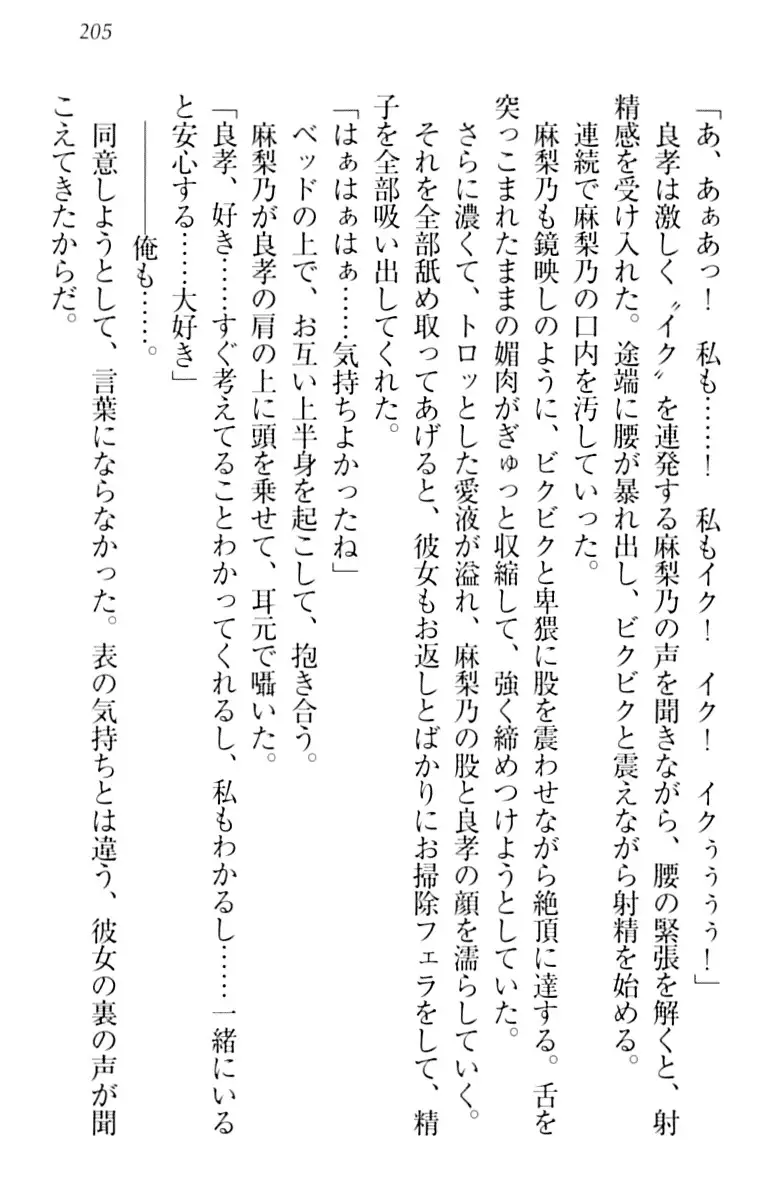 205
「あ、あぁあっ！　私も……！　私もイク！　イク！　イクぅぅぅぅ！」
　良孝は激しく〝イク〟を連発する麻梨乃の声を聞きながら、腰の緊張を解くと、射
精感を受け入れた。途端に腰が暴れ出し、ビクビクと震えながら射精を始める。
　連続で麻梨乃の口内を汚していった。
　麻梨乃も鏡映しのように、ビクビクと卑猥に股を震わせながら絶頂に達する。舌を
突っこまれたままの媚肉がぎゅっと収縮して、強く締めつけようとしていた。
　さらに濃くて、トロッとした愛液が溢れ、麻梨乃の股と良孝の顔を濡らしていく。
　それを全部舐め取ってあげると、彼女もお返しとばかりにお掃除フェラをして、精
子を全部吸い出してくれた。
「はぁはぁはぁ……気持ちよかったね」
　ベッドの上で、お互い上半身を起こして、抱き合う。
　麻梨乃が良孝の肩の上に頭を乗せて、耳元で囁いた。
「良孝、好き……すぐ考えてることわかってくれるし、私もわかるし……一緒にいる
と安心する……大好き」
　――俺も……。
　同意しようとして、言葉にならなかった。表の気持ちとは違う、彼女の裏の声が聞
こえてきたからだ。